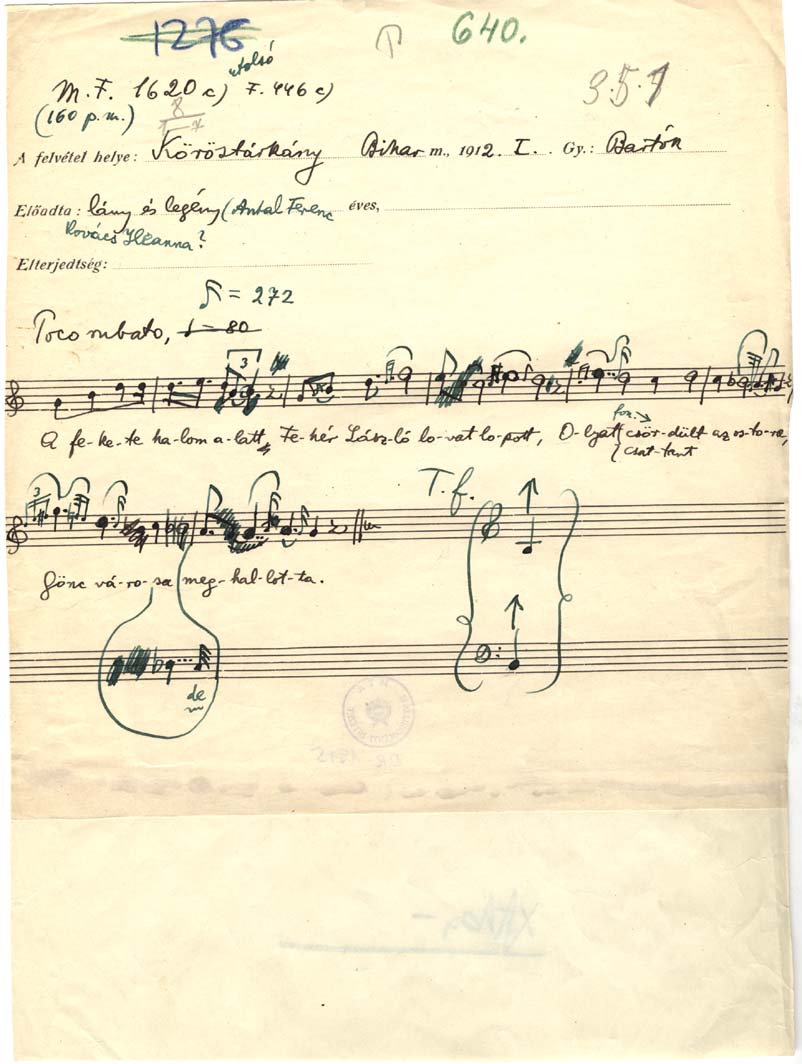 1276
640.
utolsó
M. F. 1620 c) F. 446 c)
3.5.1
(160 p. m.)
8
A felvétel helye: Köröstárkány Bihar m., 1912. I. Gy.: Bartók
Előadta: lány és legény (Antal Ferenc éves,
Kovács Ileanna?
Elterjedtség:
= 272
Poco rubato, = 80
3
A fe-ke-te ha-lom a-latt, Fe-hér Lász-ló lo-vat lo-pott, O-lyat csör-dült az os-to-ra,
csat-tant
3
T. f.
Gönc vá-ro-sa meg-hal-lot-ta.
de